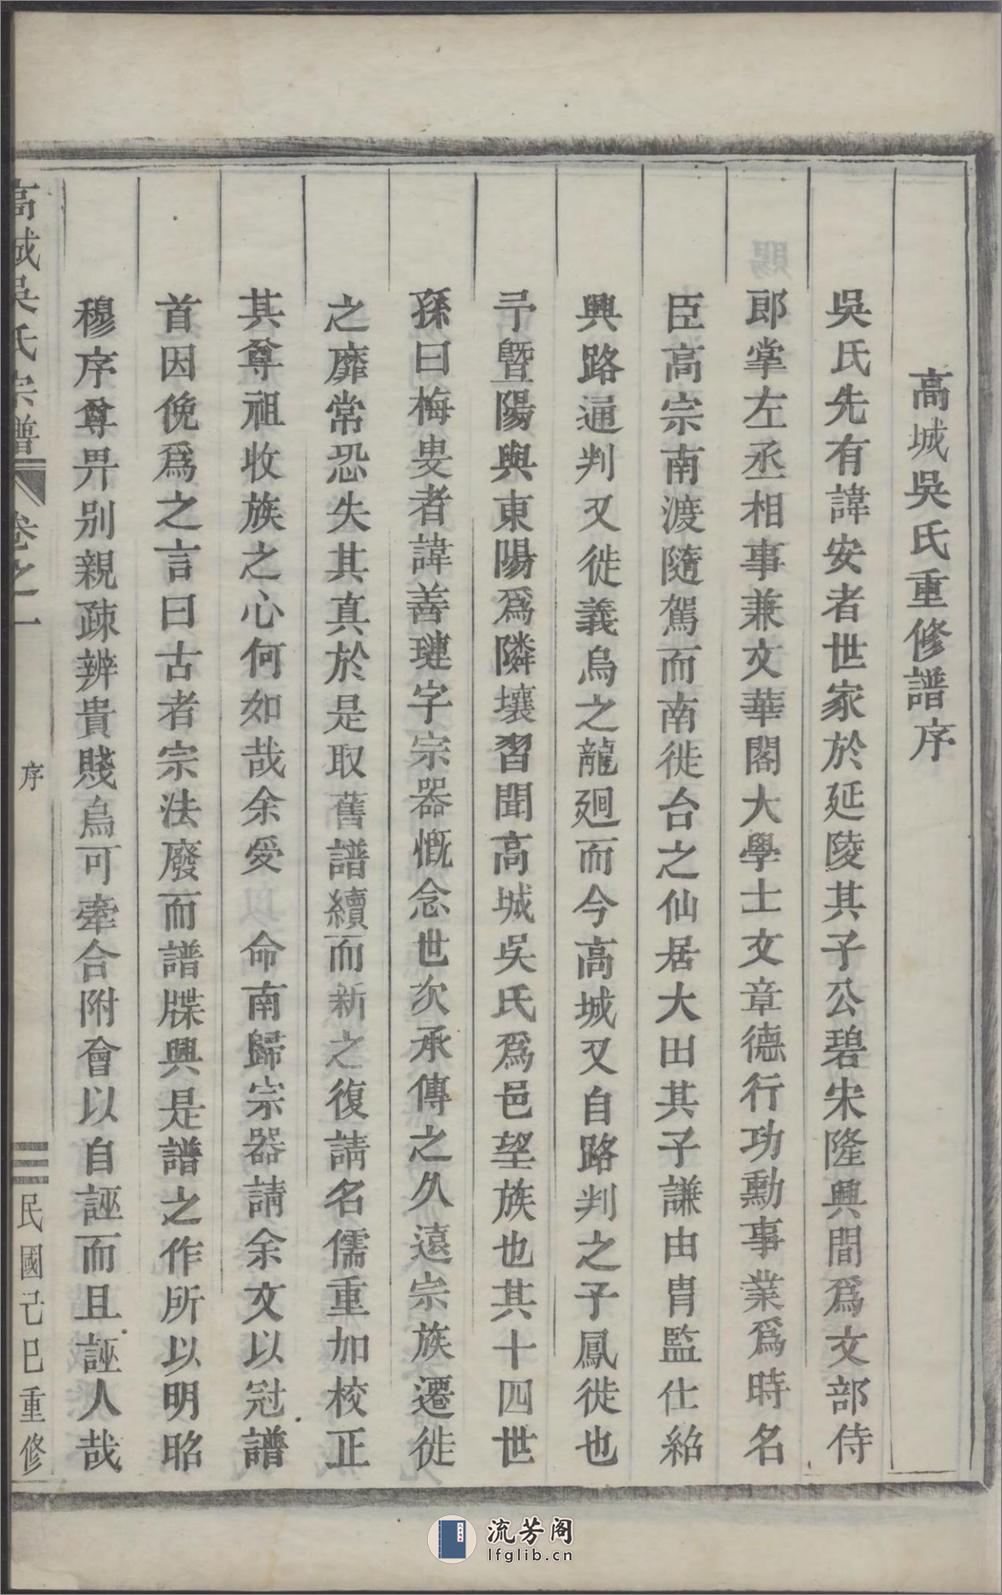 高城吳氏重修譜序
吳氏先有諱安者世家於延陵其子公碧宋隆興間爲文部侍
郎掌左丞相事兼文華閣大學士文章德行功勳事業爲時名
臣高宗南渡隨駕而南徙台之仙居大田其子謙由胄監仕紹
興路通判又徙義烏之龍廻而今高城又自路判之子鳳徙也
予曁陽與東陽爲隣壤習聞高城吳氏爲邑望族也其十四世
孫曰梅叟者諱善璉字宗器慨念世次承傳之久遠宗族遷徙
之靡常恐失其真於是取舊譜續而新之復請名儒重加校正
其尊祖收族之心何如哉余受 命南歸宗器請余文以冠譜
首因俛爲之言曰古者宗法廢而譜牒興是譜之作所以明昭
穆序尊畀別親疎辨貴賤烏可牽合附會以自誣而且誣人哉
高城吳氏宗譜 卷之一 序 民國己巳重修
流芳阁
lfglib.cn